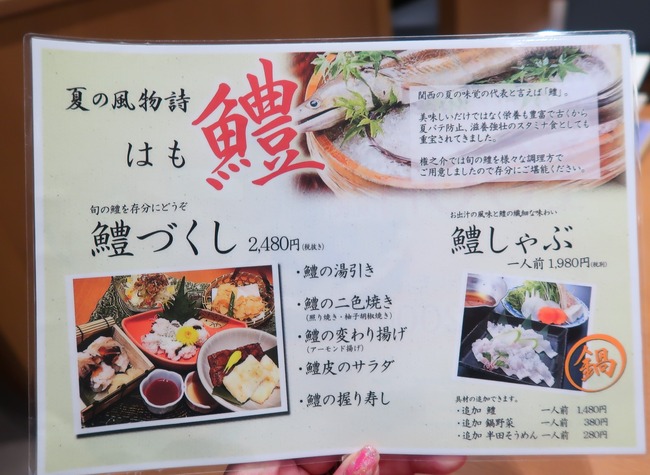 夏の風物詩
はも
鱧
関西の夏の味覚の代表と言えば「鱧」。
美味しいだけではなく栄養も豊富で古くから
夏バテ防止、滋養強壮のスタミナ食としても
重宝されてきました。
権之介では旬の鱧を様々な調理方で
ご用意しましたので存分にご堪能ください。
旬の鱧を存分にどうぞ
鱧づくし 2,480円(税抜き)
・鱧の湯引き
・鱧の二色焼き
(照り焼き・柚子胡椒焼き)
・鱧の変わり揚げ
(アーモンド揚げ)
・鱧皮のサラダ
・鱧の握り寿し
お出汁の風味と鱧の繊細な味わい
鱧しゃぶ
一人前 1,980円(税別)
鍋
具材の追加できます。
・追加 鱧 一人前 1,480円
・追加 鍋野菜 一人前 380円
・追加 半田そうめん 一人前 280円